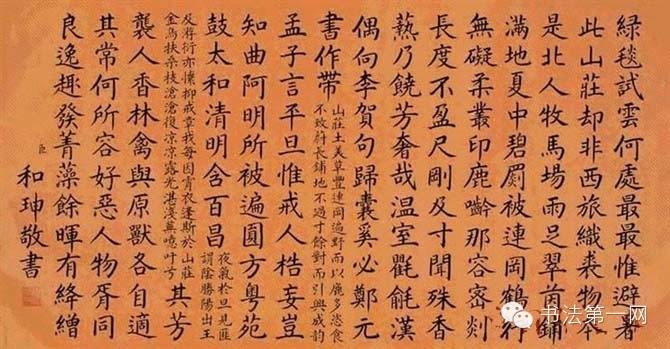 綠毯試雲何處最最惟避暑
此山莊却非西旅織裘物本
是北人牧馬場雨足翠茵鋪
滿地夏中碧罽被連岡鶴行
無礙柔叢印鹿齝那容密剡
長度不盈尺剛及寸聞殊香
爇乃饒芳奢哉温室氍毹漢
偶向李賀句歸囊奚必鄭元
書作帶
山莊土美草豐連岡遍野而以鹿多恣食
不致蔚長鋪地不過寸餘對而引興成韵
孟子言平旦惟戒人梏妄豈
知曲阿明所被遍圓方粵苑
鼓太和清明含百昌
夜氣於旦見匪
謂陰勝陽出王
及游衍亦懍抑戒章我每因宵衣逢斯於山莊
金烏扶桑枝滄滄復凉凉露光湛淺草噫吁兮
其芳
襲人香林禽與原獸各自適
其常何所容好惡人物胥同
良逸趣發菁藻餘暉有絳繒
臣和珅敬書
书法第一网